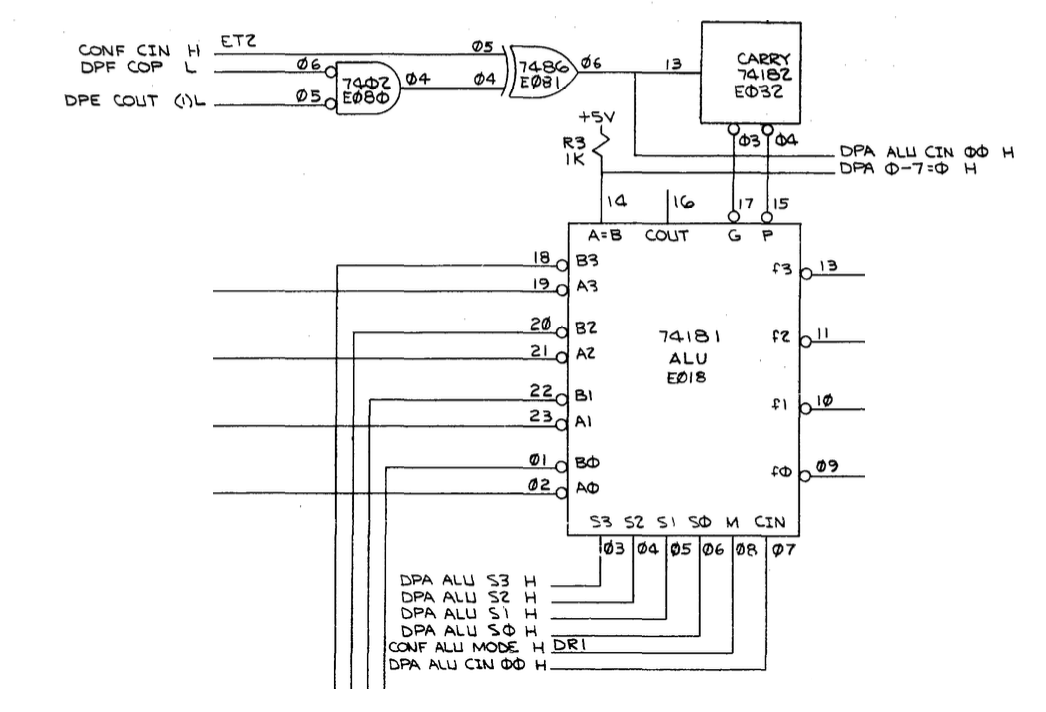 CONF CIN H ET2
DPF COP L
DPE COUT (1)L
Ø6
Ø5
74Ø2
EØ8Ø
Ø4
Ø5
Ø4
7486
EØ81
Ø6
13
CARRY
74182
EØ32
Ø3
Ø4
+5V
R3
1K
DPA ALU CIN ØØ H
DPA Ø-7=Ø H
14
16
17
15
A=B COUT G P
18 B3
19 A3
2Ø B2
21 A2
22 B1
23 A1
Ø1 BØ
Ø2 AØ
74181
ALU
EØ18
f3 13
f2 11
f1 1Ø
fØ Ø9
S3 S2 S1 SØ M CIN
Ø3 Ø4 Ø5 Ø6 Ø8 Ø7
DPA ALU S3 H
DPA ALU S2 H
DPA ALU S1 H
DPA ALU SØ H
CONF ALU MODE H DR1
DPA ALU CIN ØØ H